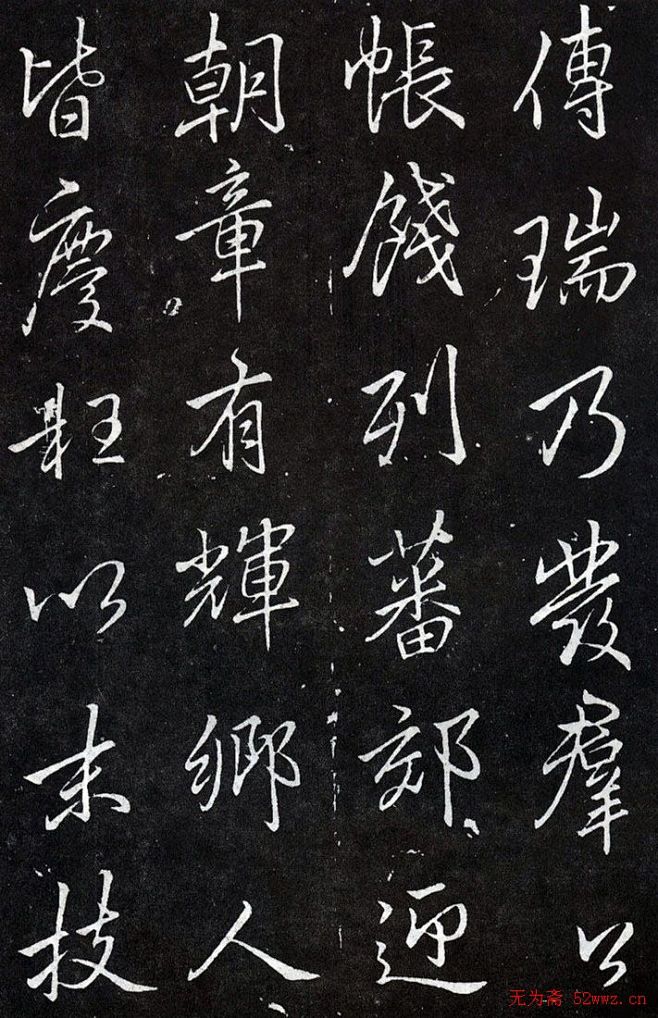 傳瑞乃發羣公
帳餞列蕃郊迎
朝章有輝鄉人
皆慶以末技
无为斋 52wwz.cn